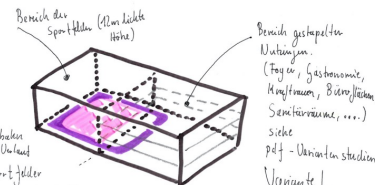 Bereich der
Sportfelder (12m lichte
Höhe)
Bereich gestapelter
Nutzungen.
(Foyer, Gastronomie,
Kraftraum, Büroflächen
Sanitärräume, ....)
siehe
pdf - Varianten studien
Variante 1
Umlauf